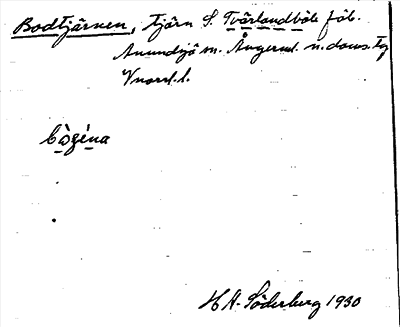 Bodtjärnen, tjärn S. Tvärlandböle fäb.
Anundsjö sn. Ångerml. n. doms.
V norrl. l.
bo̱gèna
H A. Söderberg 1930